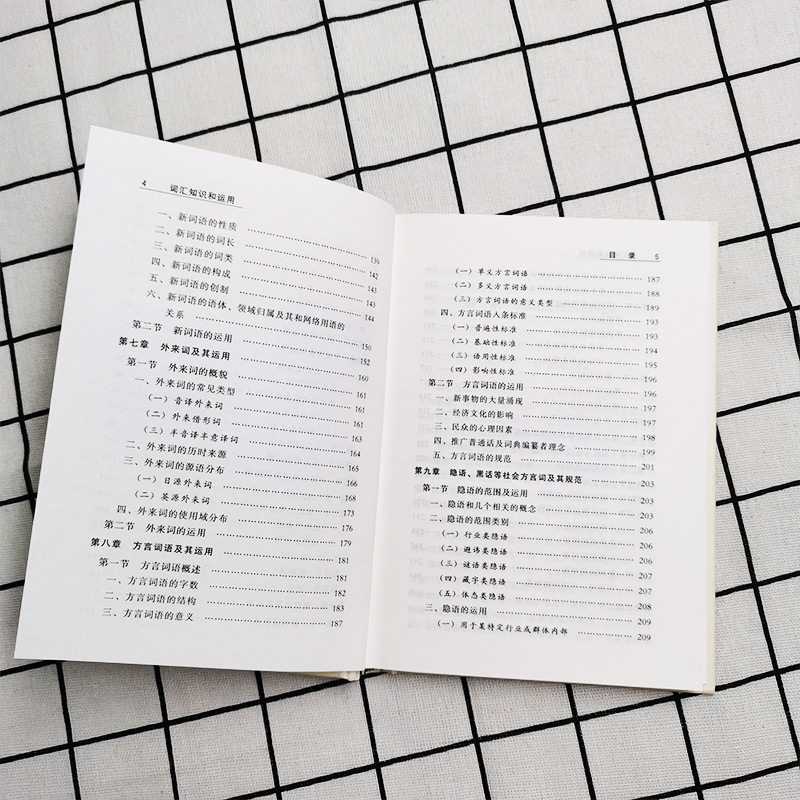 4 词汇知识和运用
一、新词语的性质 …… 139
二、新词语的词长 …… 142
三、新词语的词类 …… 143
四、新词语的构成 …… 143
五、新词语的创制 …… 144
六、新词语的语体、领域归属及其和网络用语的
关系 …… 150
第二节 新词语的运用 …… 152
第七章 外来词及其运用 …… 160
第一节 外来词的概貌 …… 161
一、外来词的常见类型 …… 161
（一）音译外来词 …… 161
（二）外来借形词 …… 164
（三）半音译半意译词 …… 165
二、外来词的历时来源 …… 166
三、外来词的源语分布 …… 168
（一）日源外来词 …… 168
（二）英源外来词 …… 173
四、外来词的使用域分布 …… 176
第二节 外来词的运用 …… 179
第八章 方言词语及其运用 …… 181
第一节 方言词语概述 …… 181
一、方言词语的字数 …… 182
二、方言词语的结构 …… 183
三、方言词语的意义 …… 187
目 录 5
（一）单义方言词语 …… 187
（二）多义方言词语 …… 188
（三）方言词语的意义类型 …… 189
四、方言词语入条标准 …… 193
（一）普遍性标准 …… 193
（二）基础性标准 …… 194
（三）语用性标准 …… 195
（四）影响性标准 …… 196
第二节 方言词语的运用 …… 196
一、新事物的大量涌现 …… 197
二、经济文化的影响 …… 198
三、民众的心理因素 …… 199
四、推广普通话及词典编纂者理念 …… 200
五、方言词语的规范 …… 201
第九章 隐语、黑话等社会方言词及其规范 …… 203
第一节 隐语的范围及运用 …… 203
一、隐语和几个相关的概念 …… 203
二、隐语的范围类别 …… 206
（一）行业类隐语 …… 206
（二）避讳类隐语 …… 206
（三）谜语类隐语 …… 207
（四）藏字类隐语 …… 207
（五）体态类隐语 …… 208
三、隐语的运用 …… 209
（一）用于某特定行业或群体内部 …… 209